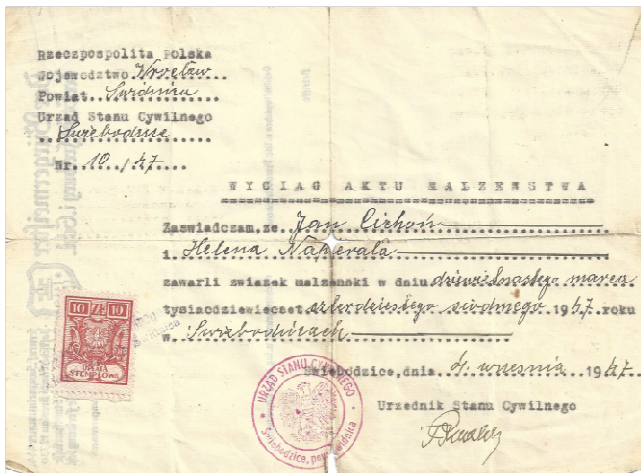 Rzeczpospolita Polska
Wojewodztwo Wrocław
Powiat Świdnica
Urzad Stanu Cywilnego
Nr. 10/47
WYCIAG AKTU MALZENSTWA
Zaswiadczam, ze Jan Cichoń
i Helena Napierała
zawarli zwiazek malzenski w dniu dziewiętnastego marca
tysiacdziewiecset czterdziestego siódmego 1947 roku
w Świebodzicach
Swiebodzice, dnia 4. września 1947
Urzednik Stanu Cywilnego
10 ZŁ 10
OPŁATA
STEMPLOWA
URZĄD STANU CYWILNEGO
Świebodzice, pow. Świdnica